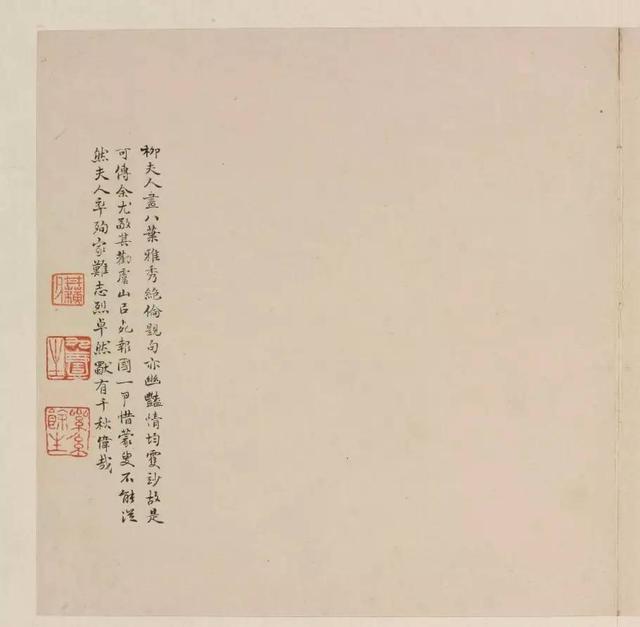 柳夫人畫八葉雅秀絕倫題句亦幽豔情均靈妙故是
可傳余尤敬其勸虞山以死報國一甲惜蒙叟不能從
然夫人卒殉家難志烈卓然獸有千秋偉哉